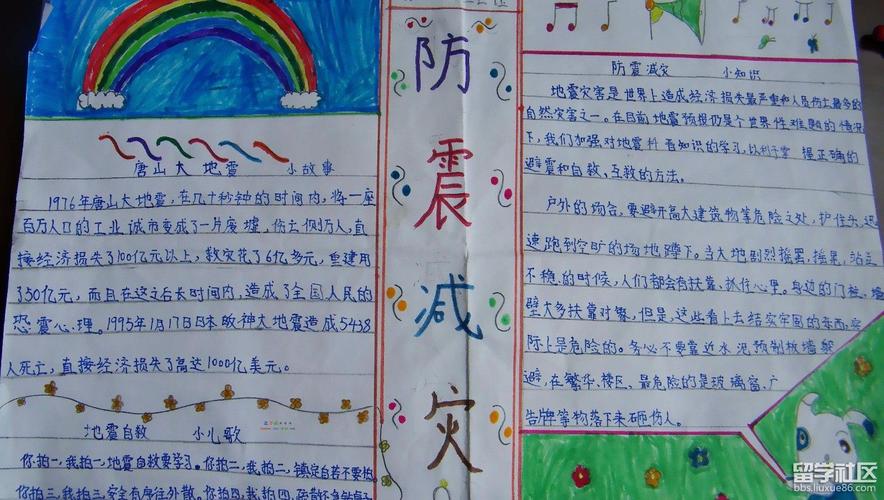 唐山大地震 小故事
1976年唐山大地震,在几十秒钟的时间内,将一座
百万人口的工业城市变成了一片废墟,伤亡 万人,直
接经济损失了100亿元以上,救灾花了6亿多元,重建用
了50亿元,而且在这之后长时间内,造成了全国人民的
恐震心理。1995年1月17日日本阪神大地震造成5438
人死亡,直接经济损失了高达1000亿美元。
地震自救 小儿歌
你拍一,我拍一,地震自救要学习。你拍二,我拍二,镇定自若不要怕
你拍三,我拍三,安全有序往外散。你拍四,我拍四,
防
震
减
灾
防震减灾 小知识
地震灾害是世界上造成经济损失最严重和人员伤亡最多的
自然灾害之一。在目前地震预报仍是个世界性难题的情况
下,我们加强对地震科普知识的学习,以利于掌握正确的
避震和自救、互救的方法。
户外的场合,要避开高大建筑物等危险之处,护住头,迅
速跑到空旷的场地蹲下。当大地剧烈摇晃,摇晃,站立
不稳的时候,人们都会有扶靠、抓住心里。身边的门柱、墙
壁大多扶靠对象,但是,这些看上去结实牢固的东西,实
际上是危险的。务必不要靠近水泥预制板墙 躲
避,在繁华、楼区、最危险的是玻璃窗、广
告牌等物落下来砸伤人。
留学社区
bbs.liuxue86.com